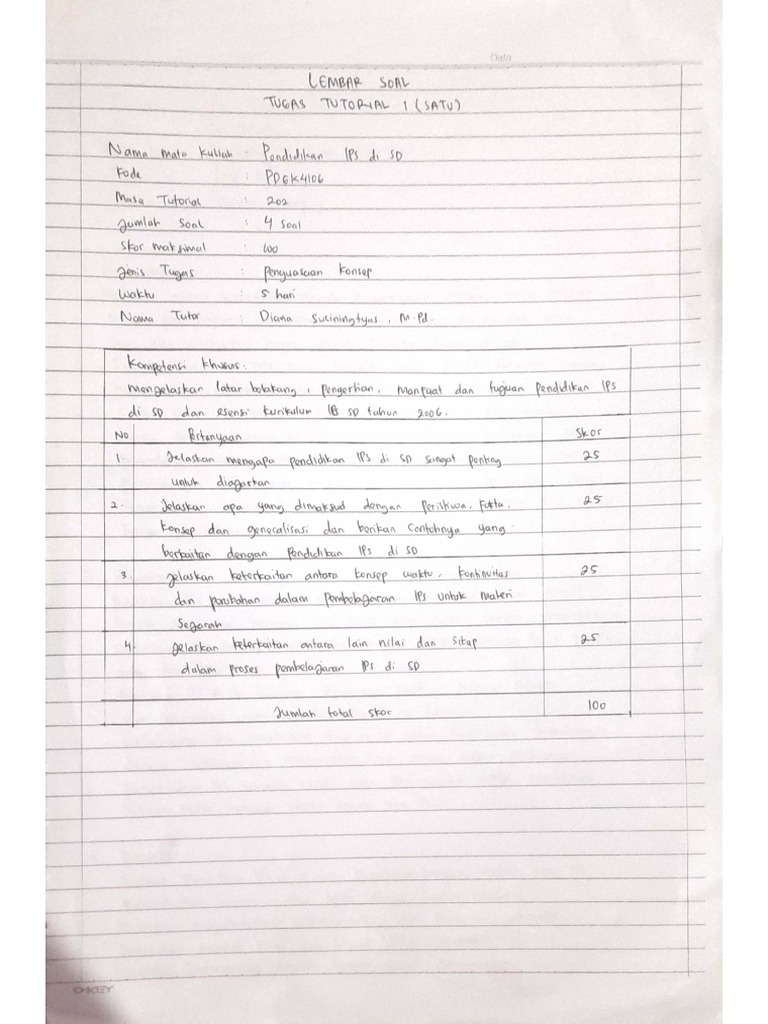 Date
LEMBAR SOAL
TUGAS TUTORIAL 1 (SATU)
Nama mata kuliah : Pendidikan IPS di SD
Kode : PDGK4106
Masa Tutorial : 202
Jumlah Soal : 4 Soal
Skor maksimal : 100
Jenis Tugas : Penguasaan Konsep
Waktu : 5 hari
Nama Tutor : Diana Suciningtyas, M.Pd.
Kompetensi khusus:
mengelaskan latar belakang, pengertian, manfaat dan tujuan pendidikan IPS
di SD dan esensi kurikulum SD tahun 2006.
No Pertanyaan Skor
1. Jelaskan mengapa pendidikan IPS di SD sangat penting 25
untuk diajarkan
2. Jelaskan apa yang dimaksud dengan Peristiwa, Fakta, 25
Konsep dan generalisasi dan berikan Contohnya yang
berkaitan dengan Pendidikan IPS di SD
3. Jelaskan keterkaitan antara konsep waktu, kontinuitas 25
dan perubahan dalam pembelajaran IPS untuk materi
Sejarah
4. Jelaskan keterkaitan antara lain nilai dan Sikap 25
dalam proses pembelajaran IPS di SD
Jumlah total skor 100